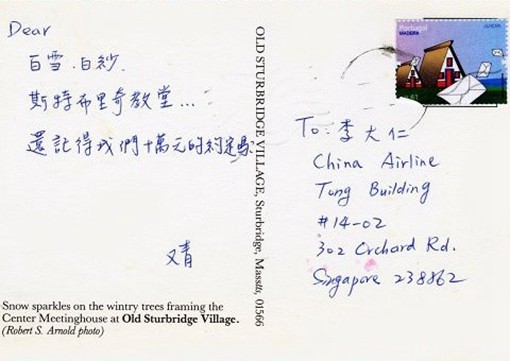 Dear
百雪.白紗.
斯特布里奇教堂...
還記得我們十萬元的約定嗎.
又青
Snow sparkles on the wintry trees framing the
Center Meetinghouse at Old Sturbridge Village.
(Robert S. Arnold photo)
OLD STURBRIDGE VILLAGE, Sturbridge, Masstts, 01566
Portugal
MADEIRA
To: 李大仁
China Airline
Tong Building
#14-02
302 Orchard Rd.
Singapore 238862